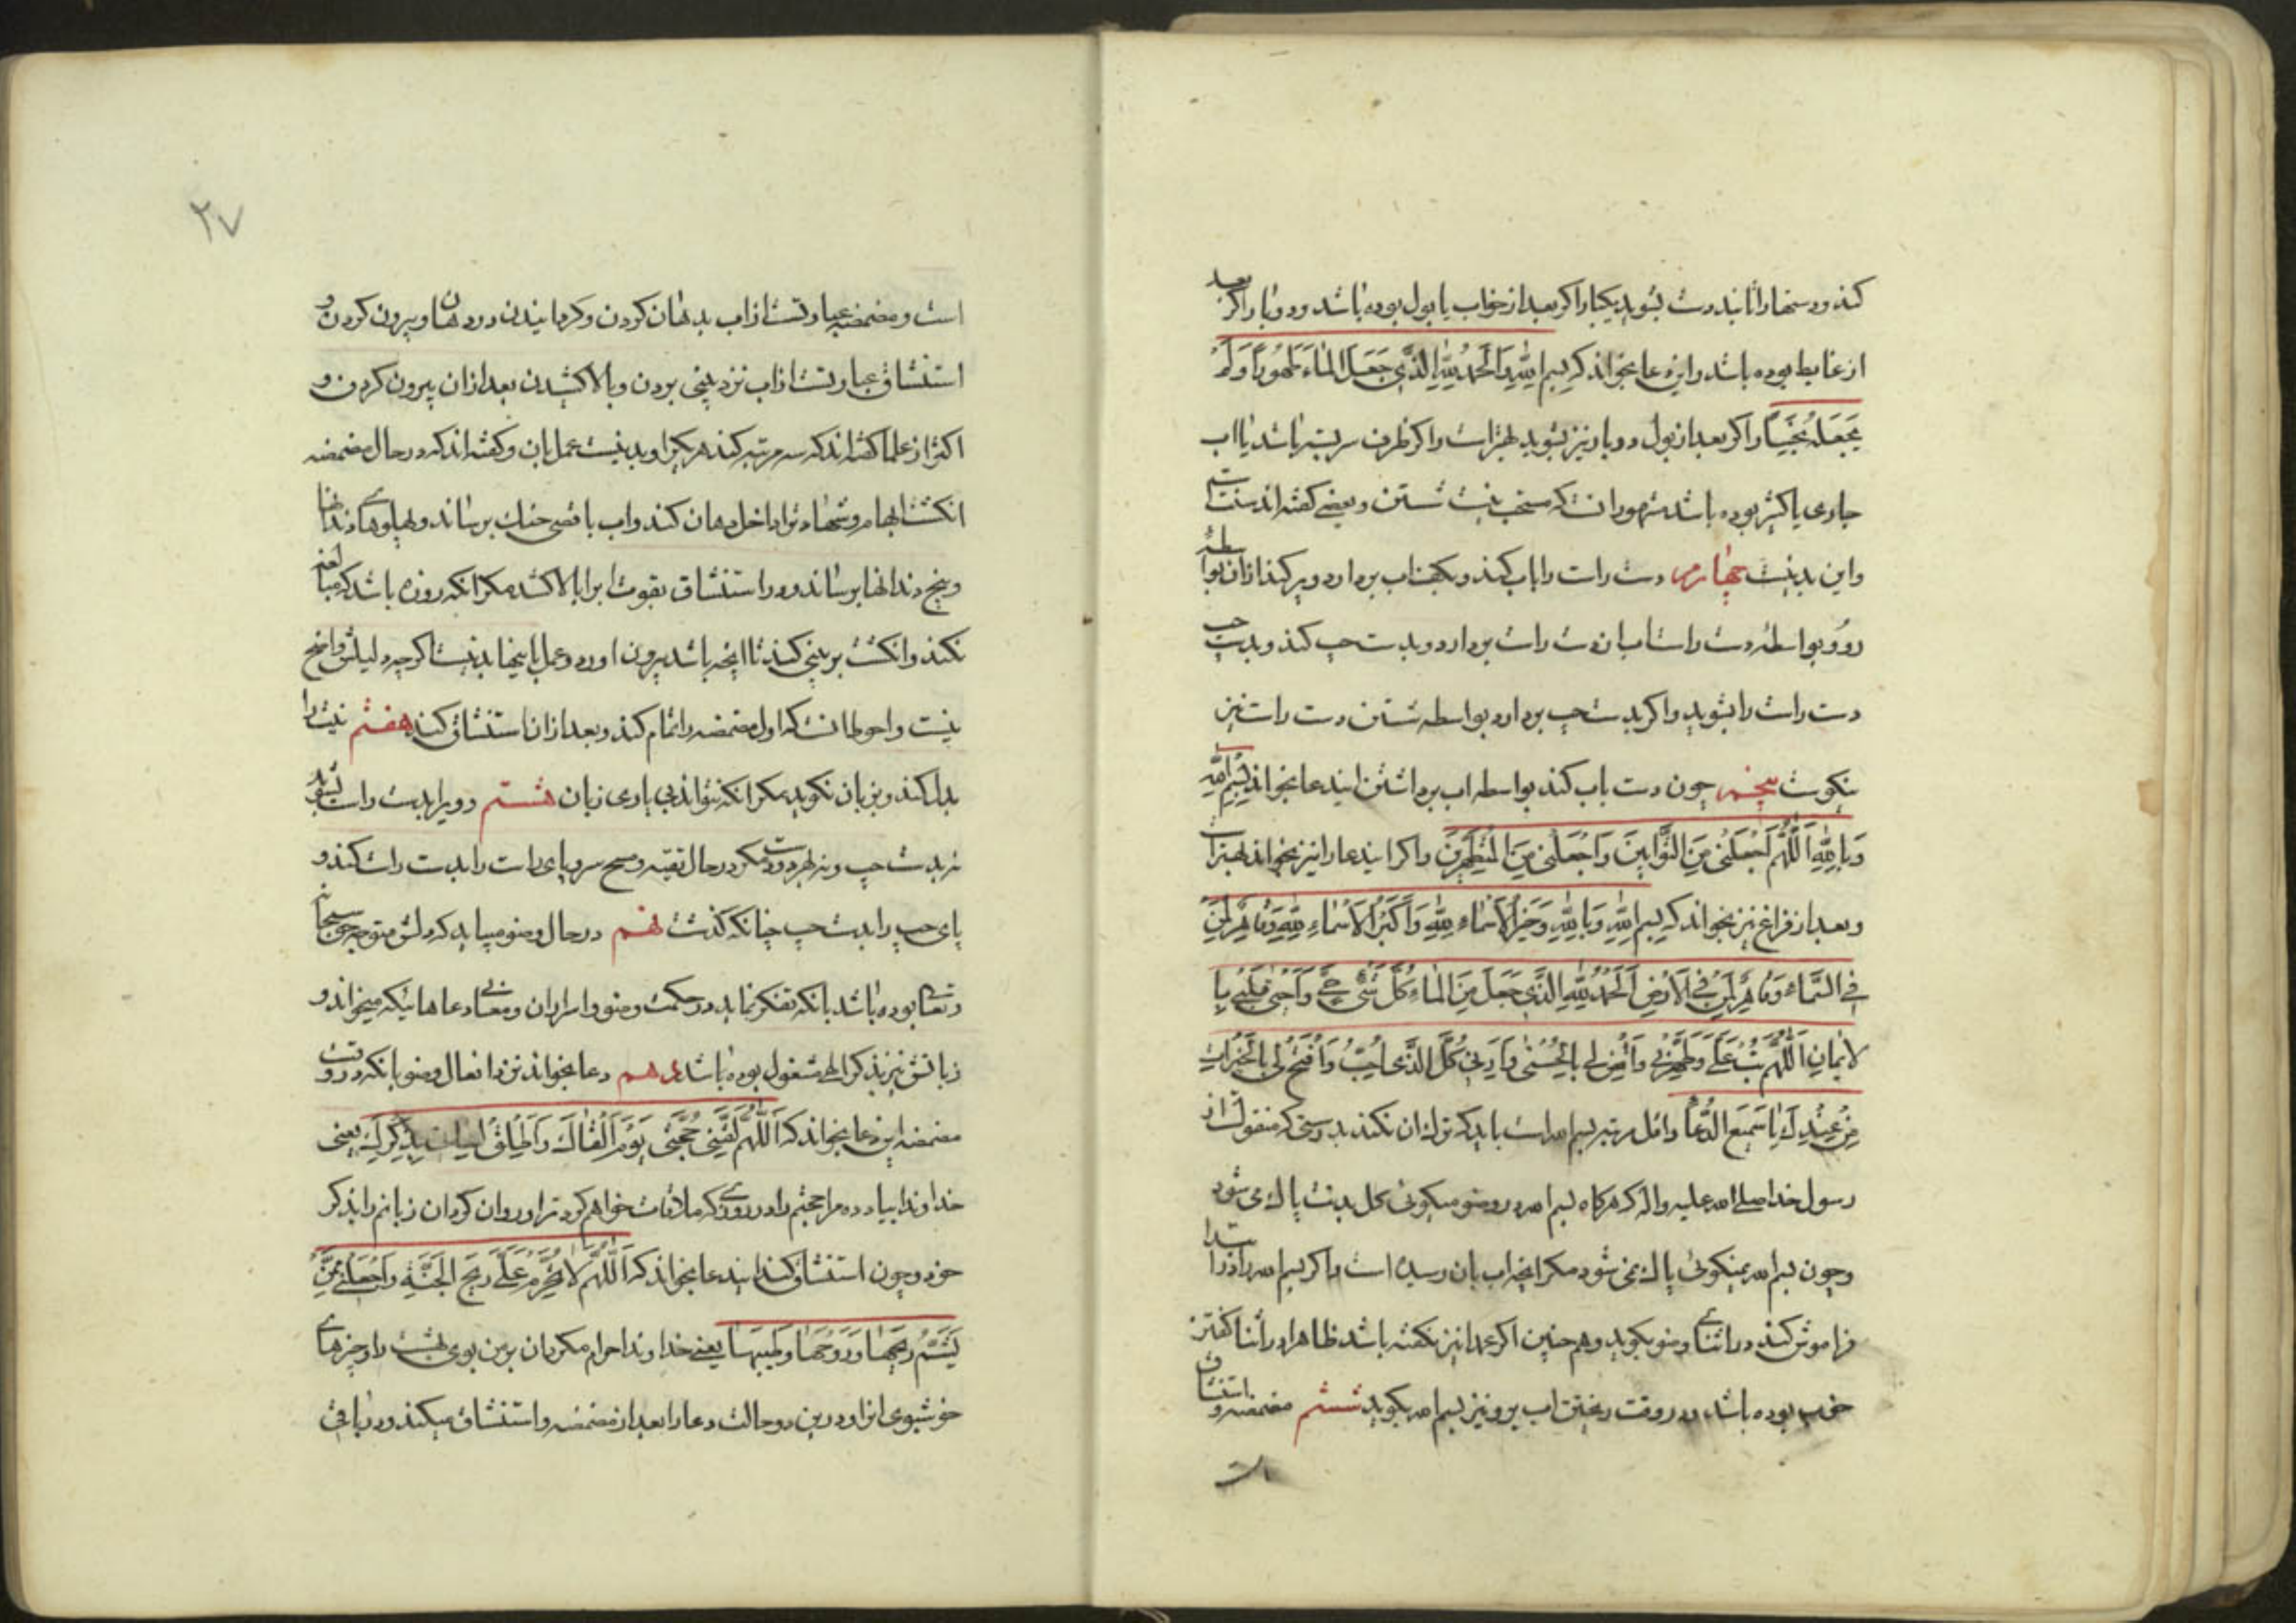 کند و دستها را تا بند دست بشوید یکبار اگر بعد از خواب یا بول بوده باشد و دو بار اگر بعد
از غایط بوده باشد و این دعا بخواند که بِسمِ اللّٰهِ وَالحَمدُ لِلّٰهِ الَّذی جَعَلَ المٰاءَ طَهُوراً وَلَم
یَجعَلهُ نَجِساً و اگر بعد از بول دو بار نیز بشوید بهتر است و اگر ظرف سر بسته باشد یا اب
جاری یا کثیر بوده باشد مشهور انست که مستحب نیست شستن و بعضی کفته اند سنتست
و این بد نیست چهارم دست راست را باب کند و بکف اب بردارد و پر کند از ان بواسطه
رو و بواسطه دست راست بان دست راست بردارد و بدست چپ کند و بدست چپ
دست راست را بشوید و اگر بدست چپ بردارد بواسطه شستن دست راست نیز
نیکوست پنجم چون دست باب کند بواسطه اب برداشتن ایندعا بخواند بِسمِ اللّٰهِ
وَبِاللّٰهِ اَللّٰهُمَّ اجعَلنی مِنَ التَّوّٰابینَ وَاجعَلنی مِنَ المُتَطَهِّرینَ و اگر ایندعا را نیز بخواند بهتر است
و بعد از فراغ نیز بخواند که بِسمِ اللّٰهِ وَبِاللّٰهِ وَخَیرُ الاَسمٰاءِ لِلّٰهِ وَاَکبَرُ الاَسمٰاءِ لِلّٰهِ وَقٰاهِرٌ لِمَن
فِی السَّمٰاءِ وَقٰاهِرٌ لِمَن فِی الاَرضِ اَلحَمدُ لِلّٰهِ الَّذی جَعَلَ مِنَ المٰاءِ کُلَّ شَیءٍ حَیٍّ وَاَحیٰی قَلبی بِا
لایمٰانِ اَللّٰهُمَّ تُب عَلَیَّ وَطَهِّرنی وَاقضِ لی بِالحُسنٰی وَاَرِنی کُلَّ الَّذی اُحِبُّ وَافتَح لی بِالخَیرٰاتِ
مِن عِندِکَ یٰا سَمیعَ الدُّعٰاءِ و اقل مرتبه بسم الله است باید که ترک ان نکند بدرستی که منقولست از
رسول خدا صلی الله علیه و اله که هرکاه بسم الله در وضو میکوئی کل بدنت پاک می شود
و چون بسم الله نمیکوئی پاک نمی شود مکر انچه اب بان رسیده است و اگر بسم الله را در ابتدا
فراموش کند در اثنای وضو بکوید و هم چنین اگر عمدا نیز نکفته باشد ظاهرا در اثنا کفتن
خوب بوده باشد و در وقت ریختن اب بر رو نیز بسم الله بکوید ششم مضمضه و استنشاق
است
۲۷
است و مضمضه عبارتست از اب بدهان کردن و کردانیدن در دهان و بیرون کردن و
استنشاق عبارتست از اب نزد بینی بردن و بالا کشیدن بعد از ان بیرون کردن و
اکثر از علما کفته اند که سه مرتبه کند هر یک را و بد نیست عمل بان و کفته اند که در حال مضمضه
انکشت ابهام و شهادت را داخل دهان کند و اب باقصی حنک برساند و پهلوهای دندانها
و بیخ دندانها برساند و در استنشاق بقوت اب را بالا کشد مکر انکه روزه باشد که مبالغه
نکند و انکشت بر بینی کند تا انچه باشد بیرون اورد و عمل باینها بد نیست اگر چه دلیلش واضح
نیست و احوط انست که اول مضمضه را تمام کند و بعد از ان استنشاق کند هفتم نیت را
بدل کند و بزبان نکوید مکر انکه نتواند بی یاری زبان هشتم رو را بدست راست بشوید
نه بدست چپ و نه بهر دو دست مکر در حال تقیه و مسح سر و پای راست را بدست راست کند و
پای چپ را بدست چپ چنانکه کذشت نهم در حال وضو میباید که دلش متوجه حق سبحانه
و تعالی بوده باشد بانکه تفکر نماید در حکمت وضو و اسرار ان و معانی دعاهائیکه میخواند و
زبانش نیز بذکر الهی مشغول بوده باشد دهم دعا بخواند نزد افعال وضو بانکه در وقت
مضمضه این دعا بخواند که اَللّٰهُمَّ لَقِّنی حُجَّتی یَومَ اَلقٰاکَ وَاَطلِق لِسٰانی بِذِکرِکَ یعنی
خداوندا بیاد ده مرا حجتم را در روزی که ملاقات خواهم کرد ترا و روان کردان زبانم را بذکر
خود و چون استنشاق کند ایندعا بخواند که اَللّٰهُمَّ لاٰ تُحَرِّم عَلَیَّ ریحَ الجَنَّةِ وَاجعَلنی مِمَّن
یَشَمُّ ریحَهٰا وَرَوحَهٰا وَطیبَهٰا یعنی خداوندا حرام مکردان بر من بوی بهشت را و چیزهای
خوشبوی انرا و درین دو حالت دعا را بعد از مضمضه و استنشاق میکند و در باقی